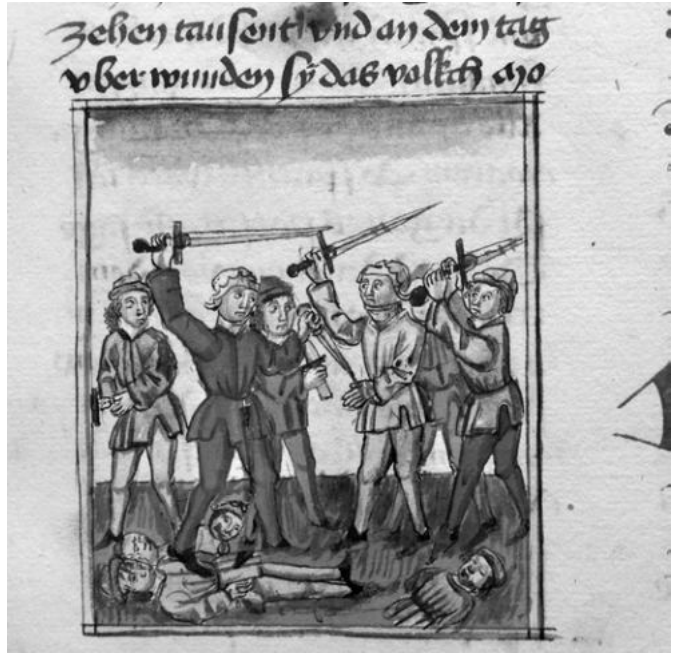 zehen tausent vnd an dem tag
vber wunden sÿ das volkch mo